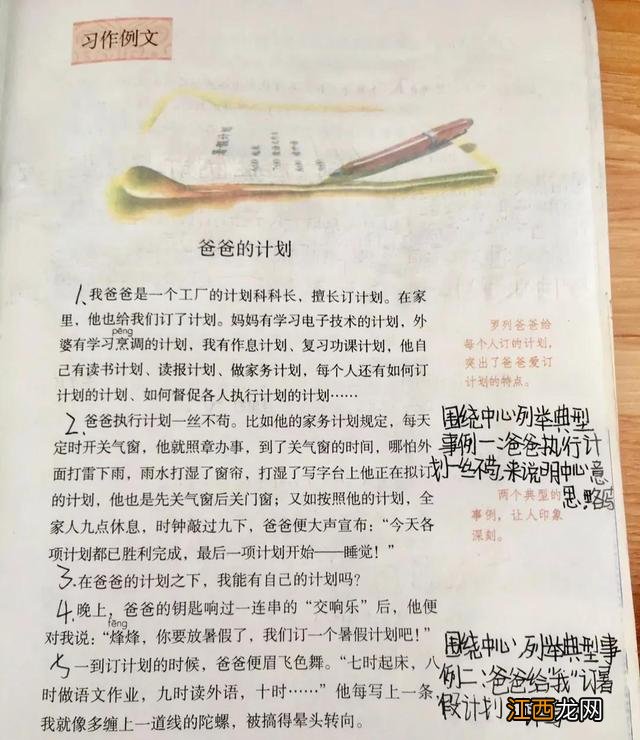 习作例文
暑假计划
爸爸的计划
1、我爸爸是一个工厂的计划科科长，擅长订计划。在家
里，他也给我们订了计划。妈妈有学习电子技术的计划，外
pēng
婆有学习烹调的计划，我有作息计划、复习功课计划，他自
己有读书计划、读报计划、做家务计划，每个人还有如何订
计划的计划、如何督促各人执行计划的计划……
罗列爸爸给
每个人订的计划，
突出了爸爸爱订
计划的特点。
2、爸爸执行计划一丝不苟。比如他的家务计划规定，每天
定时开关气窗，他就照章办事，到了关气窗的时间，哪怕外
面打雷下雨，雨水打湿了窗帘，打湿了写字台上他正在拟订
的计划，他也是先关气窗后关门窗；又如按照他的计划，全
家人九点休息，时钟敲过九下，爸爸便大声宣布：“今天各
项计划都已胜利完成，最后一项计划开始——睡觉！”
围绕中心，列举典型
事例一：爸爸执行计
划一丝不苟，来说明中心意
思，略写
两个典型的
事例，让人印象
深刻。
3、在爸爸的计划之下，我能有自己的计划吗？
4、晚上，爸爸的钥匙响过一连串的“交响乐”后，他便
fēng
对我说：“烽烽，你要放暑假了，我们订一个暑假计划吧！”
5、一到订计划的时候，爸爸便眉飞色舞。“七时起床，八
时做语文作业，九时读外语，十时……”他每写上一条，
我就像多缠上一道线的陀螺，被搞得晕头转向。
围绕中心，列举典型事
例二：爸爸给“我”订暑
假计划
江西龙网